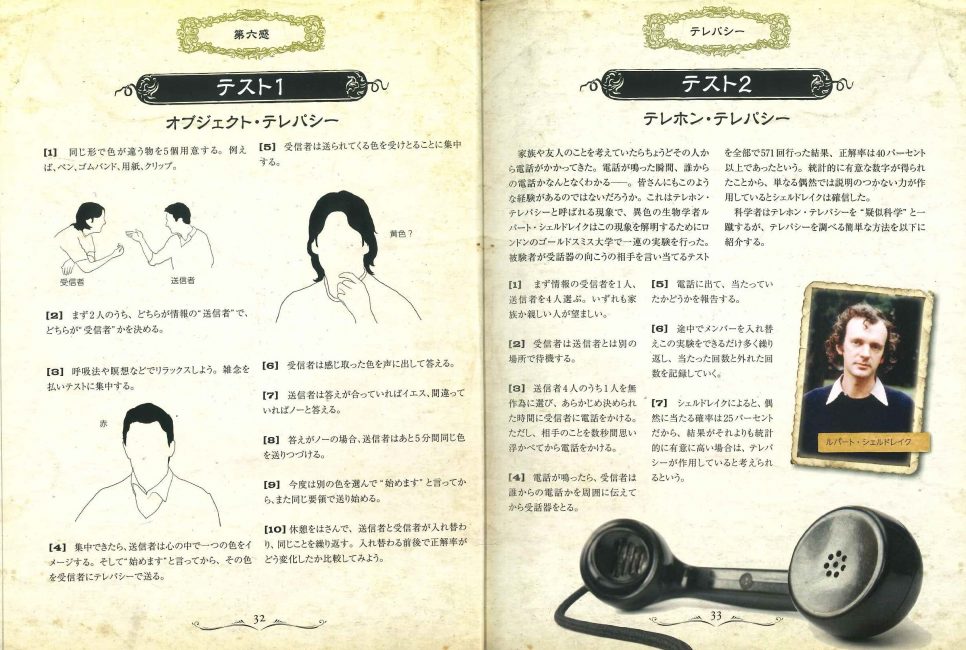 第六感
テスト1
オブジェクト・テレパシー
[1] 同じ形で色が違う物を5個用意する。例え
ば、ペン、ゴムバンド、用紙、クリップ。
受信者
送信者
[2] まず2人のうち、どちらが情報の“送信者”で、
どちらが“受信者”かを決める。
[3] 呼吸法や瞑想などでリラックスしよう。雑念を
払いテストに集中する。
赤
[4] 集中できたら、送信者は心の中で一つの色をイ
メージする。そして“始めます”と言ってから、その色
を受信者にテレパシーで送る。
[5] 受信者は送られてくる色を受けとることに集中
する。
黄色？
[6] 受信者は感じ取った色を声に出して答える。
[7] 送信者は答えが合っていればイエス、間違って
いればノーと答える。
[8] 答えがノーの場合、送信者はあと5分間同じ色
を送りつづける。
[9] 今度は別の色を選んで“始めます”と言ってか
ら、また同じ要領で送り始める。
[10] 休憩をはさんで、送信者と受信者が入れ替わ
り、同じことを繰り返す。入れ替わる前後で正解率が
どう変化したか比較してみよう。
32
テレパシー
テスト2
テレホン・テレパシー
家族や友人のことを考えていたらちょうどその人か
ら電話がかかってきた。電話が鳴った瞬間、誰から
の電話かなんとなくわかる——。皆さんにもこのよう
な経験があるのではないだろうか。これはテレホン・
テレパシーと呼ばれる現象で、異色の生物学者ル
パート・シェルドレイクはこの現象を解明するためにロ
ンドンのゴールドスミス大学で一連の実験を行った。
被験者が受話器の向こうの相手を言い当てるテスト
を全部で571回行った結果、正解率は40パーセント
以上であったという。統計的に有意な数字が得られ
たことから、単なる偶然では説明のつかない力が作
用しているとシェルドレイクは確信した。
科学者はテレホン・テレパシーを“疑似科学”と一
蹴するが、テレパシーを調べる簡単な方法を以下に
紹介する。
[1] まず情報の受信者を1人、
送信者を4人選ぶ。いずれも家
族か親しい人が望ましい。
[2] 受信者は送信者とは別の
場所で待機する。
[3] 送信者4人のうち1人を無
作為に選び、あらかじめ決められ
た時間に受信者に電話をかける。
ただし、相手のことを数秒間思い
浮かべてから電話をかける。
[4] 電話が鳴ったら、受信者は
誰からの電話かを周囲に伝えて
から受話器をとる。
[5] 電話に出て、当たってい
たかどうかを報告する。
[6] 途中でメンバーを入れ替
えこの実験をできるだけ多く繰り
返し、当たった回数と外れた回
数を記録していく。
[7] シェルドレイクによると、偶
然に当たる確率は25パーセント
だから、結果がそれよりも統計
的に有意に高い場合は、テレパ
シーが作用していると考えられ
るという。
ルパート・シェルドレイク
33